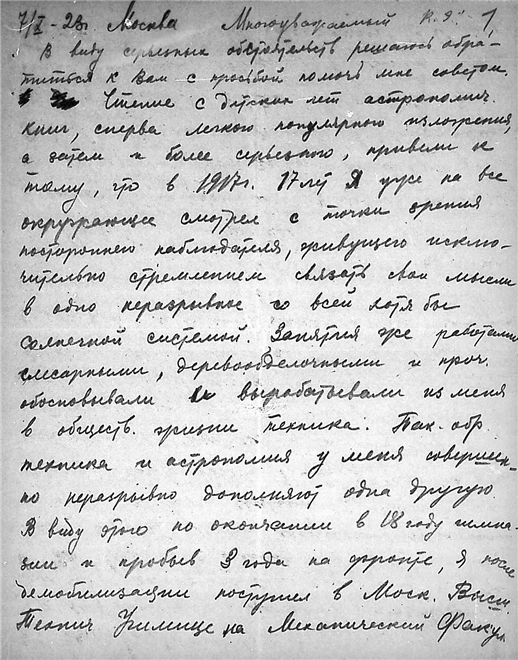 7/I - 23г. Москва Многоуважаемый К.Э.! 1
В виду серьезных обстоятельств решаюсь обра-
титься к Вам с просьбой помочь мне советом.
Чтение с детских лет астрономич.
книг, сперва легкого популярного изложения,
а затем и более серьезного, привели к
тому, что в 1917г. 17 лет я уже на все
окружающее смотрел с точки зрения
постороннего наблюдателя, живущего исклю-
чительно стремлением связать свои мысли
в одно неразрывное со всей хотя бы
солнечной системой. Занятия же работами
слесарными, деревообделочными и проч.
обосновывали и вырабатывали из меня
в обществ. жизни техника. Так. обр.
техника и астрономия у меня совершен-
но неразрывно дополняют одна другую.
В виду этого по окончании в 18 году гимна-
зии и пробыв 3 года на фронте, я после
демобилизации поступил в Моск. Высш.
Технич Училище на Механический Факул